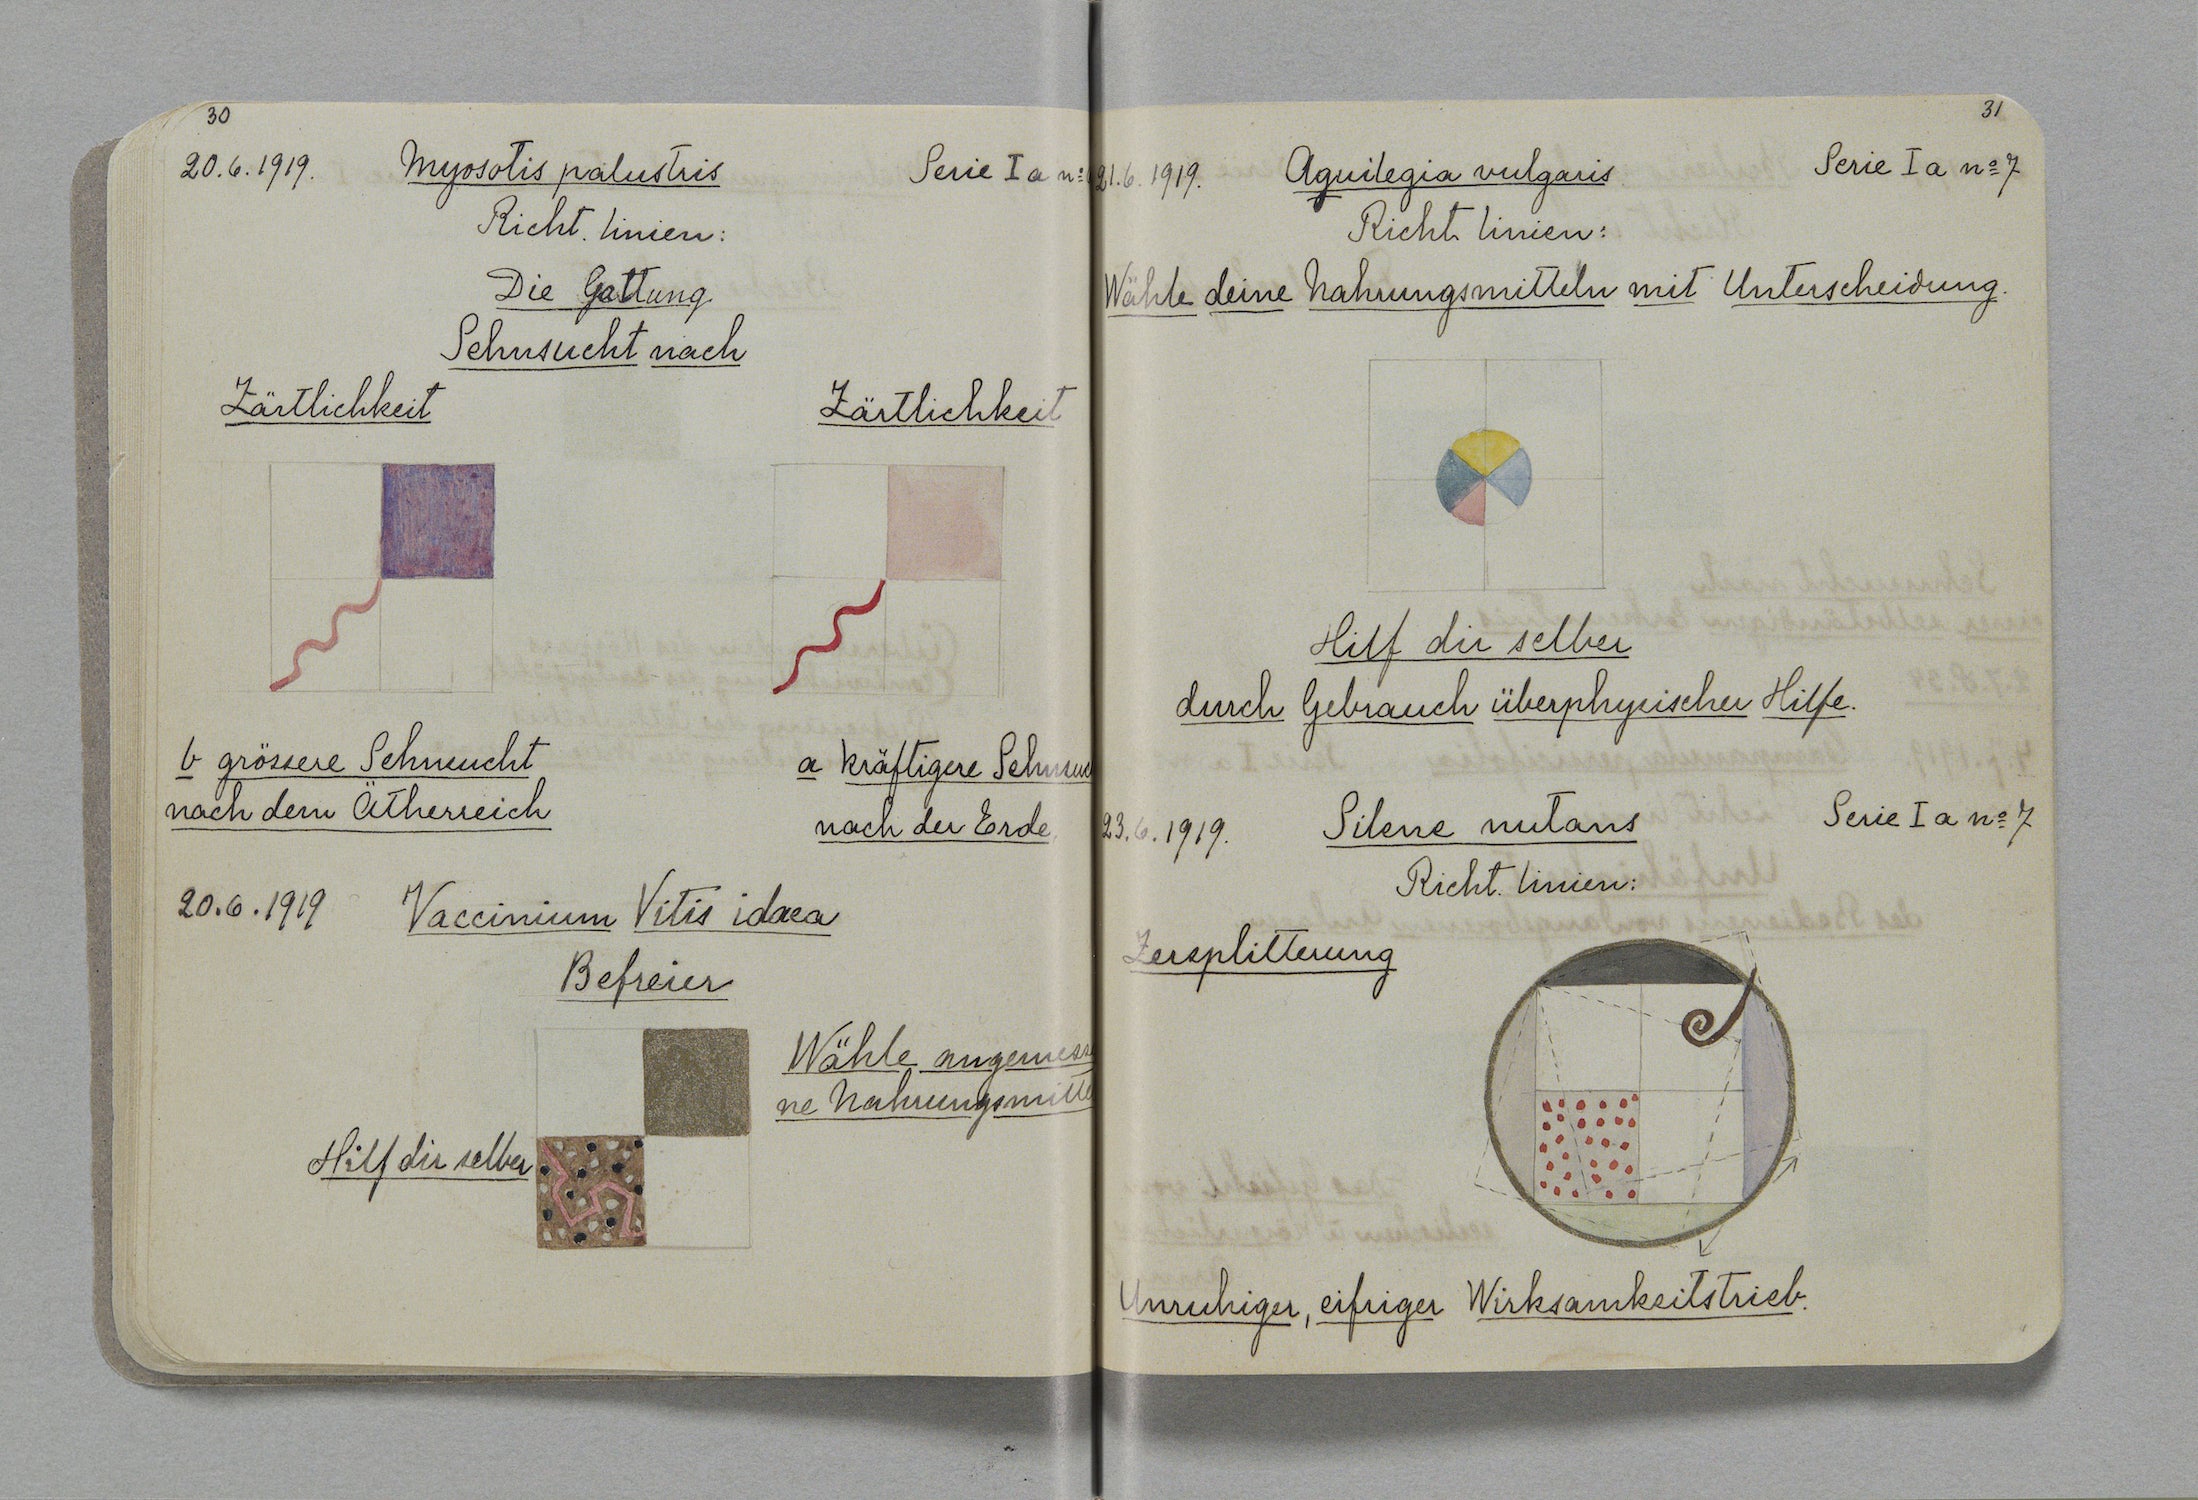 30
20.6.1919. Myosotis palustris Serie I a nº
Richt. linien:
Die Gattung
Sehnsucht nach
Zärtlichkeit Zärtlichkeit
b grössere Sehnsucht
nach dem Ätherreich
a kräftigere Sehnsuc
nach der Erde.
20.6.1919 Vaccinium Vitis idaea
Befreier
Wähle angemess
ne Nahrungsmitte
Hilf dir selber
31
21.6.1919. Aquilegia vulgaris Serie I a nº 7
Richt. linien:
Wähle deine Nahrungsmitteln mit Unterscheidung.
Hilf dir selber
durch Gebrauch überphysischer Hilfe.
23.6.1919. Silene nutans Serie I a nº 7
Richt. linien:
Zersplitterung
Unruhiger, eifriger Wirksamkeitstrieb.